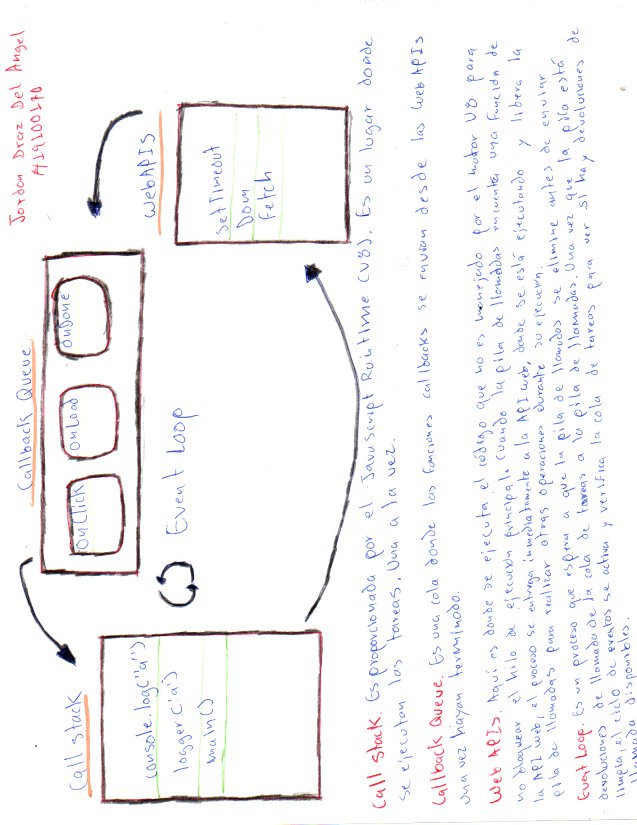 Jordan Diaz Del Angel
A19100170
Callback Queue
OnClick
OnLoad
OnDone
Call stack
console.log("a")
logger('a')
main()
Event Loop
WebAPIS
SetTimeout
Dom
Fetch
Call stack. Es proporcionada por el JavaScript Runtime (V8). Es un lugar donde
se ejecutan las tareas. Una a la vez.
Callback Queue. Es una cola donde las funciones callbacks se envian desde las Web APIs
una vez hayan terminado.
Web APIs. Aquí es donde se ejecuta el código que no es manejado por el motor V8 para
no bloquear el hilo de ejecución principal. Cuando la pila de llamadas encuentra una función de
la API web, el proceso se entrega inmediatamente a la API web, donde se está ejecutando y libera la
pila de llamadas para realizar otras operaciones durante su ejecución.
Event Loop. Es un proceso que espera a que la pila de llamadas se elimine antes de enviar
devoluciones de llamada de la cola de tareas a la pila de llamadas. Una vez que la pila está
limpia, el ciclo de eventos se activa y verifica la cola de tareas para ver si hay devoluciones de
llamada disponibles.